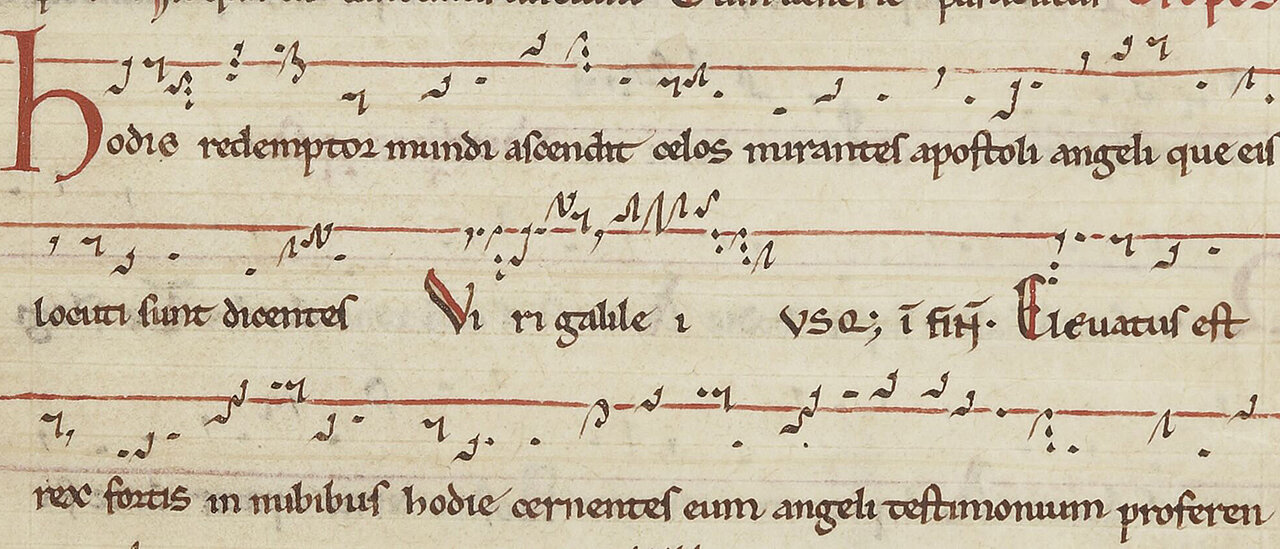 hodie redemptor mundi ascendit celos mirantes apostoli angeli que eis
locuti sunt dicentes Vi ri galile i usq; i fin̄. Elevatus est
rex fortis in nubibus hodie cernentes eum angeli testimonium proferen